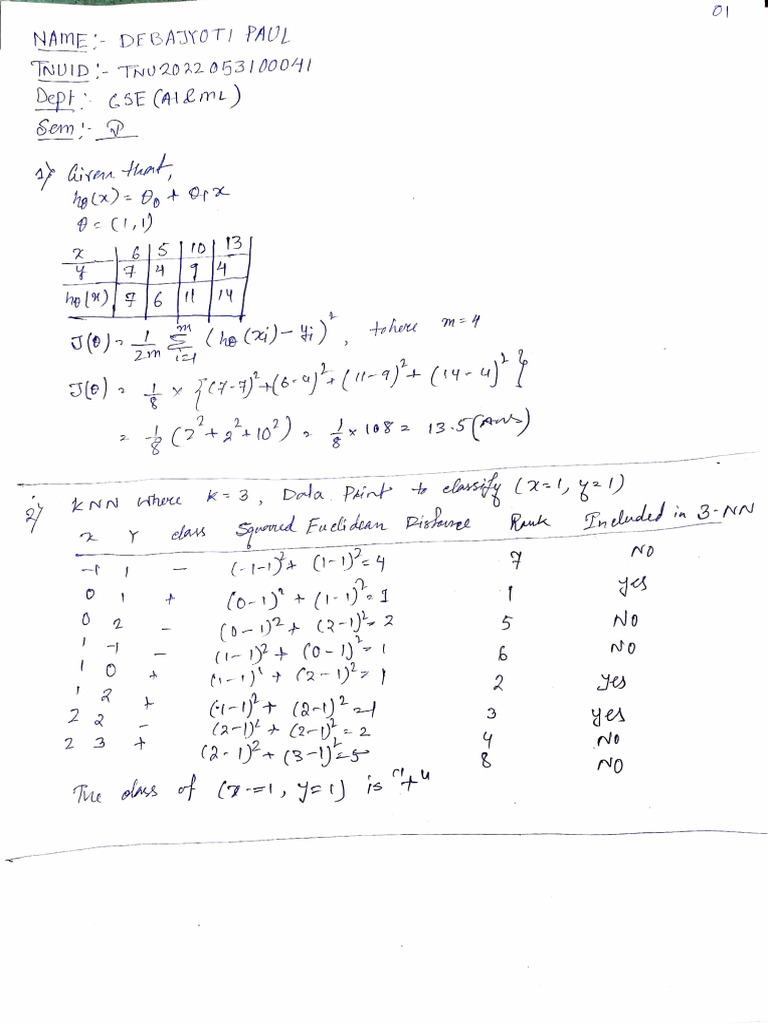 01
NAME:- DEBAJYOTI PAUL
TNUID:- TNU2022053100041
Dept:- CSE(AI&ML)
Sem:-
1) Given that,
hθ(x) = θ0 + θ1x
θ = (1,1)
x | 6 | 5 | 10 | 13
y | 7 | 4 | 9 | 4
hθ(x) | 7 | 6 | 11 | 14
J(θ) = 1/2m Σ i=1 m (hθ(xi) - yi)², where m = 4
J(θ) = 1/8 × {(7-7)²+(6-4)²+(11-9)²+(14-4)²}
= 1/8 (2²+2²+10²) = 1/8 × 108 = 13.5 (Ans)
2) KNN where k = 3, Data Point to classify (x=1, y=1)
x Y class Squared Euclidean Distance Rank Included in 3-NN
-1 1 - (-1-1)²+ (1-1)²=4 7 NO
0 1 + (0-1)² + (1-1)²=1 1 yes
0 2 - (0-1)²+ (2-1)²=2 5 NO
1 -1 - (1-1)²+ (0-1)²=1 6 NO
1 0 + (1-1)² + (2-1)²=1 2 yes
1 2 + (-1-1)²+ (2-1)²=1 3 yes
2 2 - (2-1)² + (2-1)²=2 4 NO
2 3 + (2-1)²+(3-1)²=5 8 NO
The class of (x=1, y=1) is "+"